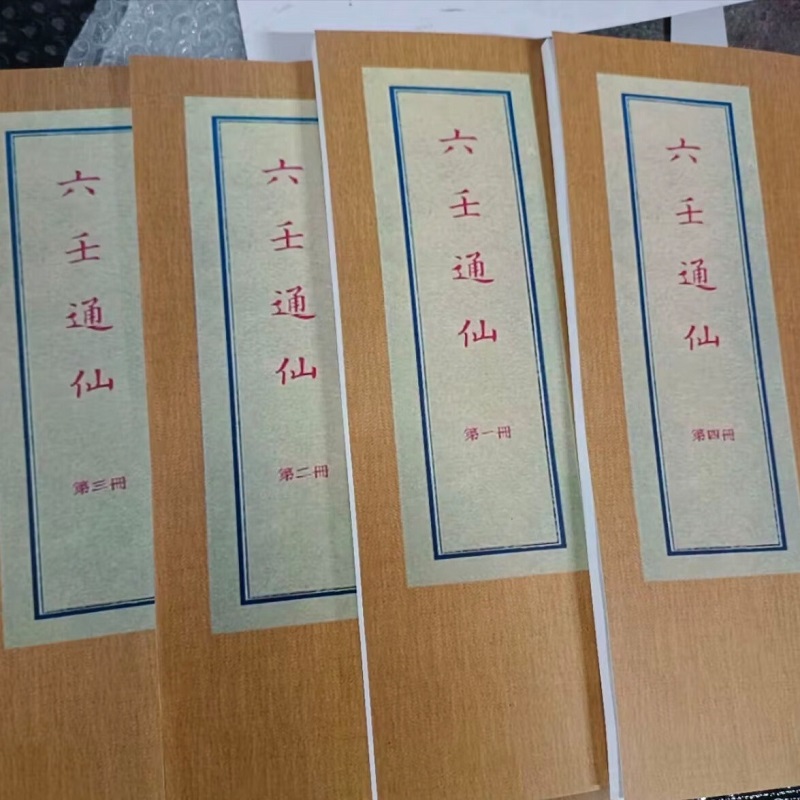 六壬通仙
第三冊
六壬通仙
第二冊
六壬通仙
第一冊
六壬通仙
第四冊